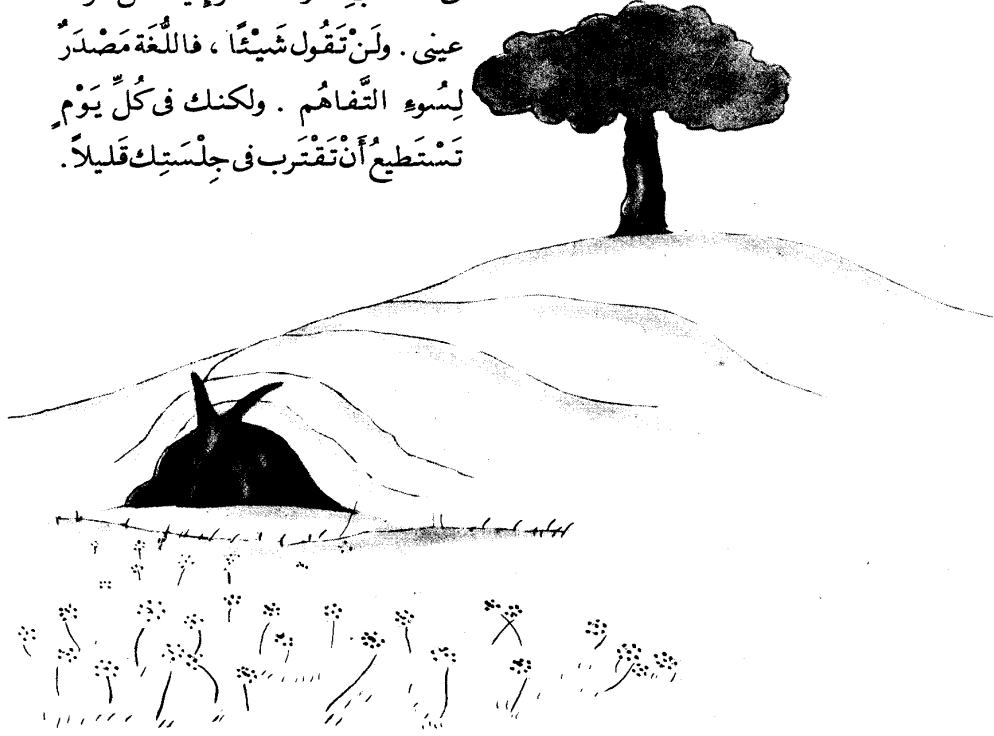 عينى . ولَنْ تَقُول شَيْئًا ، فاللُّغَة مَصْدَرٌ
لِسُوءِ التَّفاهُم . ولكنك فى كُلِّ يَوْمٍ
تَسْتَطيعُ أَنْ تَقْتَرب فى جِلْسَتِك قَليلاً .